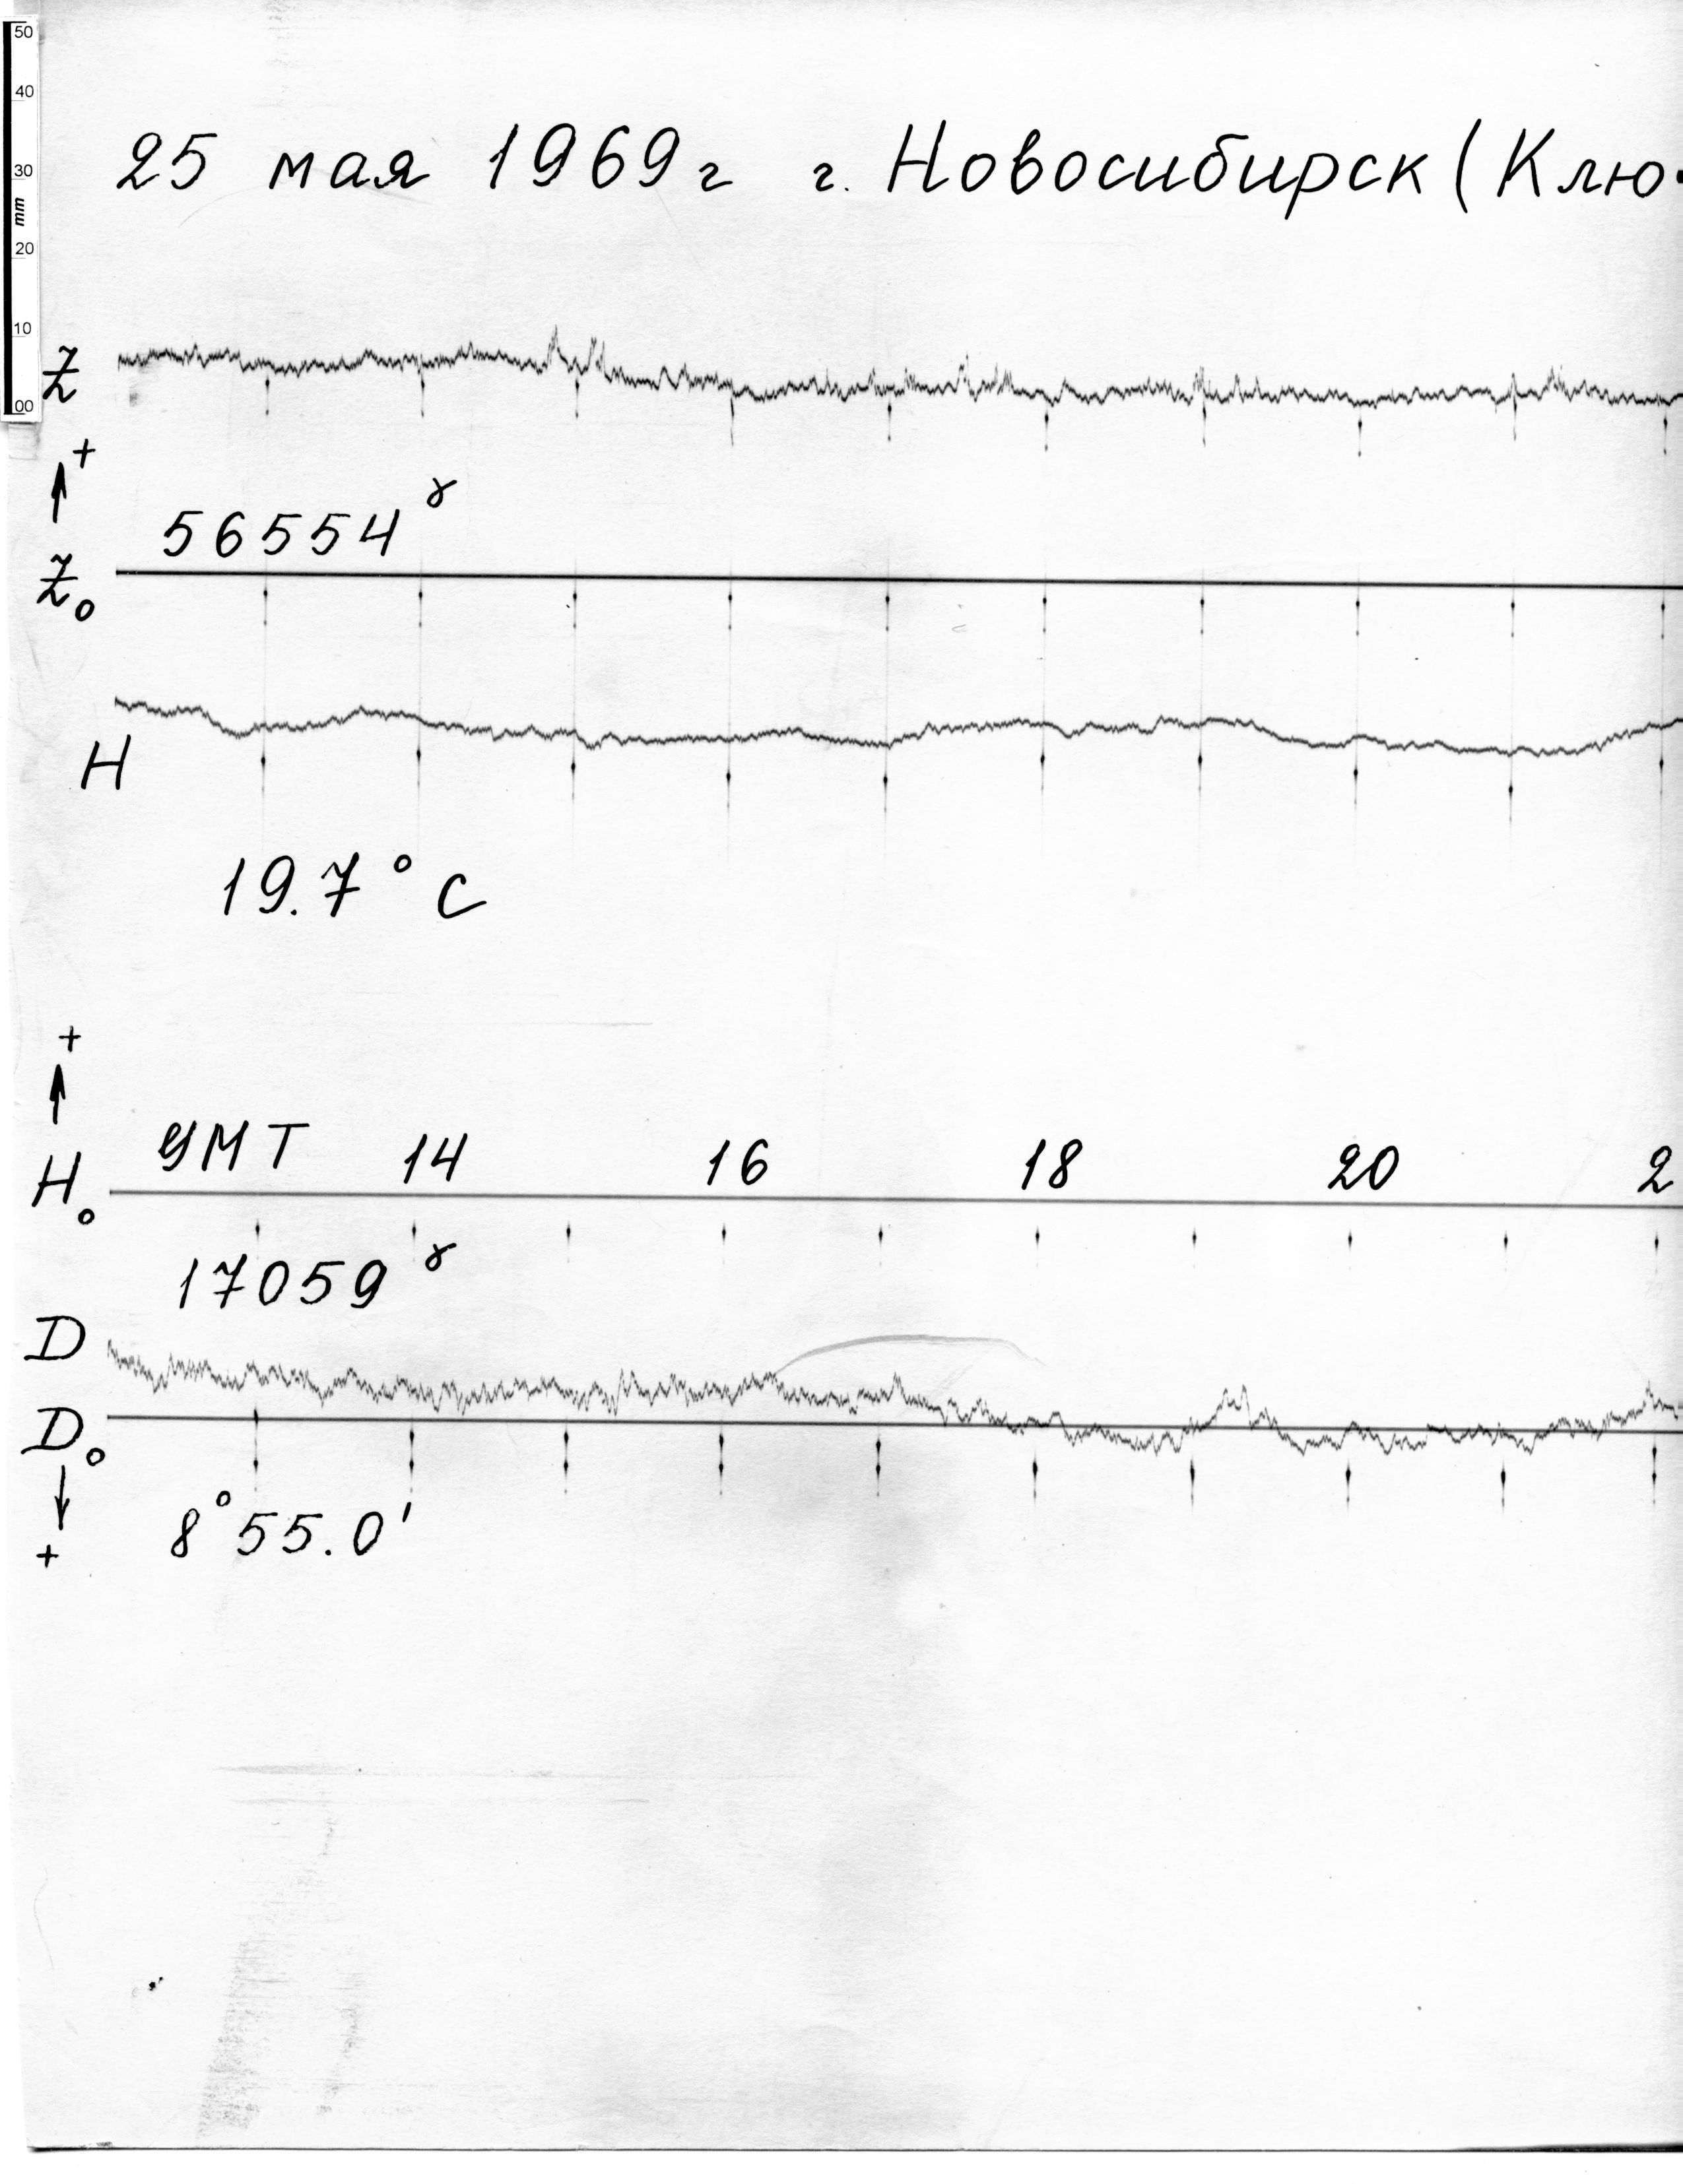 50
40
30
mm
20
10
00
25 мая 1969г г. Новосибирск (Клю
Z
+
56554 γ
Z₀
H
19.7° C
+
УМТ 14 16 18 20 2
H₀
17059 γ
D
D₀
8° 55.0'
+